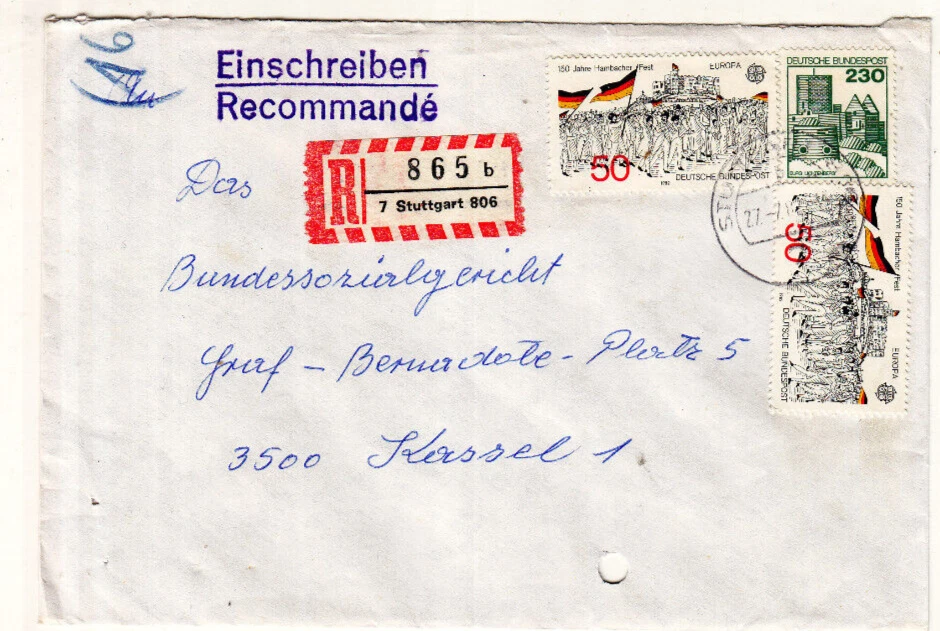 16
Einschreiben
Recommandé
R 865 b
7 Stuttgart 806
150 Jahre Hambacher Fest EUROPA
50
DEUTSCHE BUNDESPOST
1982
DEUTSCHE BUNDESPOST
230
BURG LICHTENBERG
150 Jahre Hambacher Fest EUROPA
50
DEUTSCHE BUNDESPOST
1982
STU
27.
Das
Bundessozialgericht
Graf - Bernadote - Platz 5
3500 Kassel 1